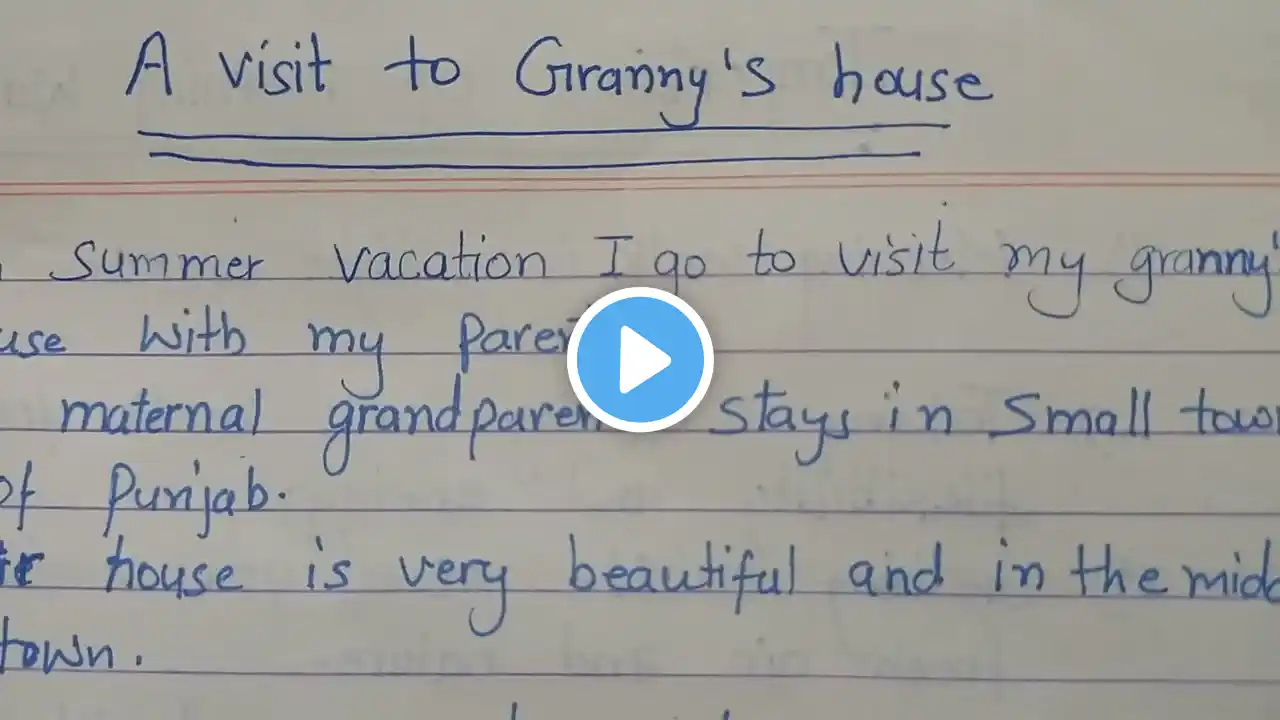 A visit to Granny's house
Summer vacation I go to visit my granny'
use with my
maternal stays in Small
of Punjab.
house is very beautiful and in the
town.